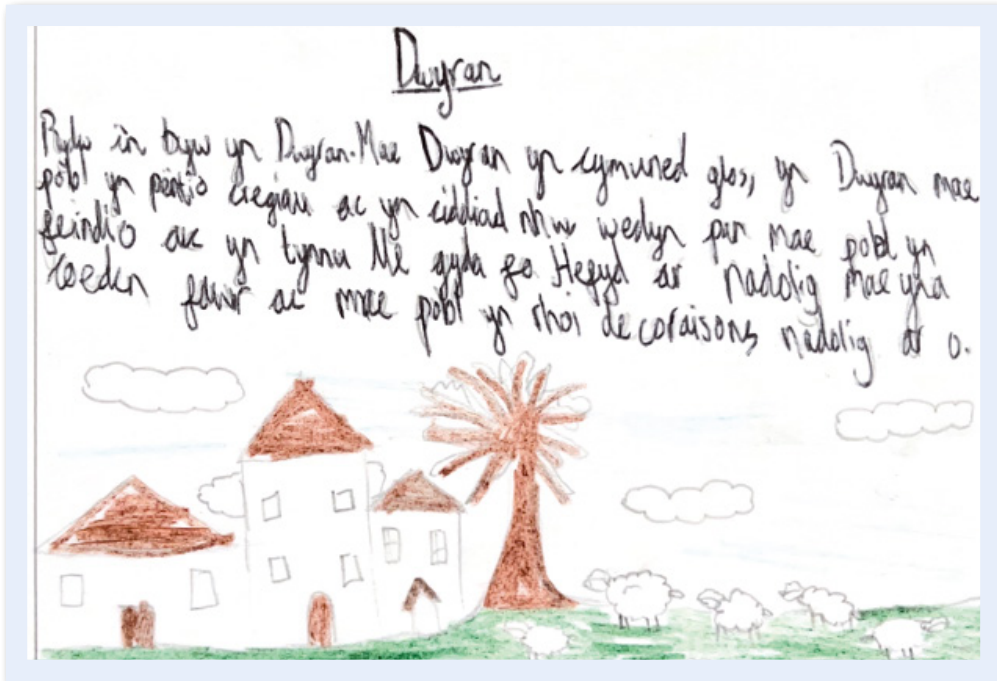 Dwyran
Rydw i'n byw yn Dwyran. Mae Dwyran yn cymuned glos, yn Dwyran mae
pobl yn pentio cregiau ac yn ciddiad nhw wedyn pan mae pobl yn
feindio ac yn tynnu llê gyda fo Hefyd ar nadolig mae yna
Coeden fawr ac mae pobl yn rhoi decoraisons nadolig ar o.